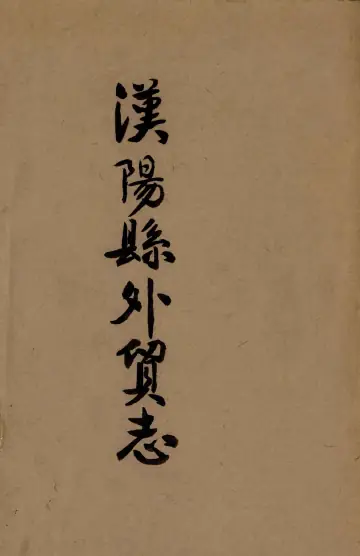 漢陽縣外貿志